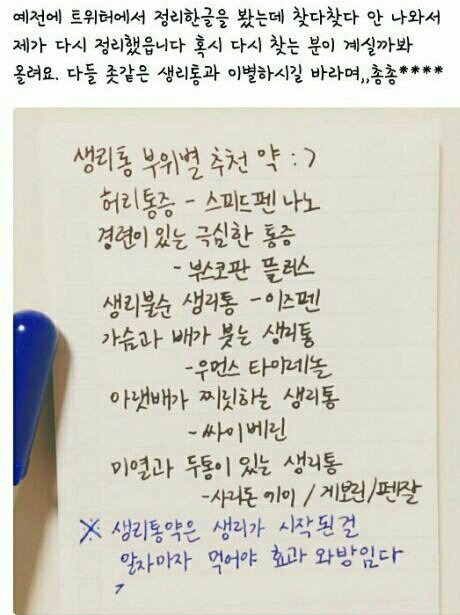 예전에 트위터에서 정리한글을 봤는데 찾다찾다 안 나와서
제가 다시 정리했읍니다 혹시 다시 찾는 분이 계실까봐
올려요. 다들 좃같은 생리통과 이별하시길 바라며,,총총****
생리통 부위별 추천 약 : >
허리통증 - 스피드펜 나노
경련이 있는 극심한 통증
- 부스코판 플러스
생리불순 생리통 - 이즈펜
가슴과 배가 붓는 생리통
- 우먼스 타이레놀
아랫배가 찌릿하는 생리통
- 싸이베린
미열과 두통이 있는 생리통
- 사리돈 에이 / 게보린 / 펜잘
※ 생리통약은 생리가 시작된걸
알자마자 먹어야 효과 와방임다